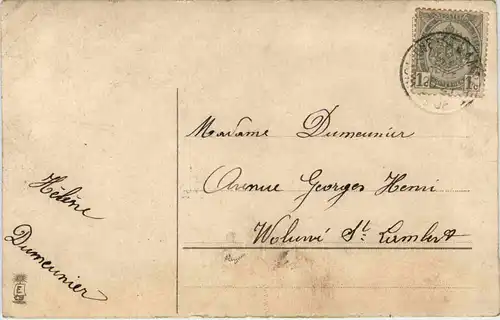 Madame Dumeunier
Avenue Georges Henri
Woluwé St. Lambert
Hélène
Dumeunier
1c 1c